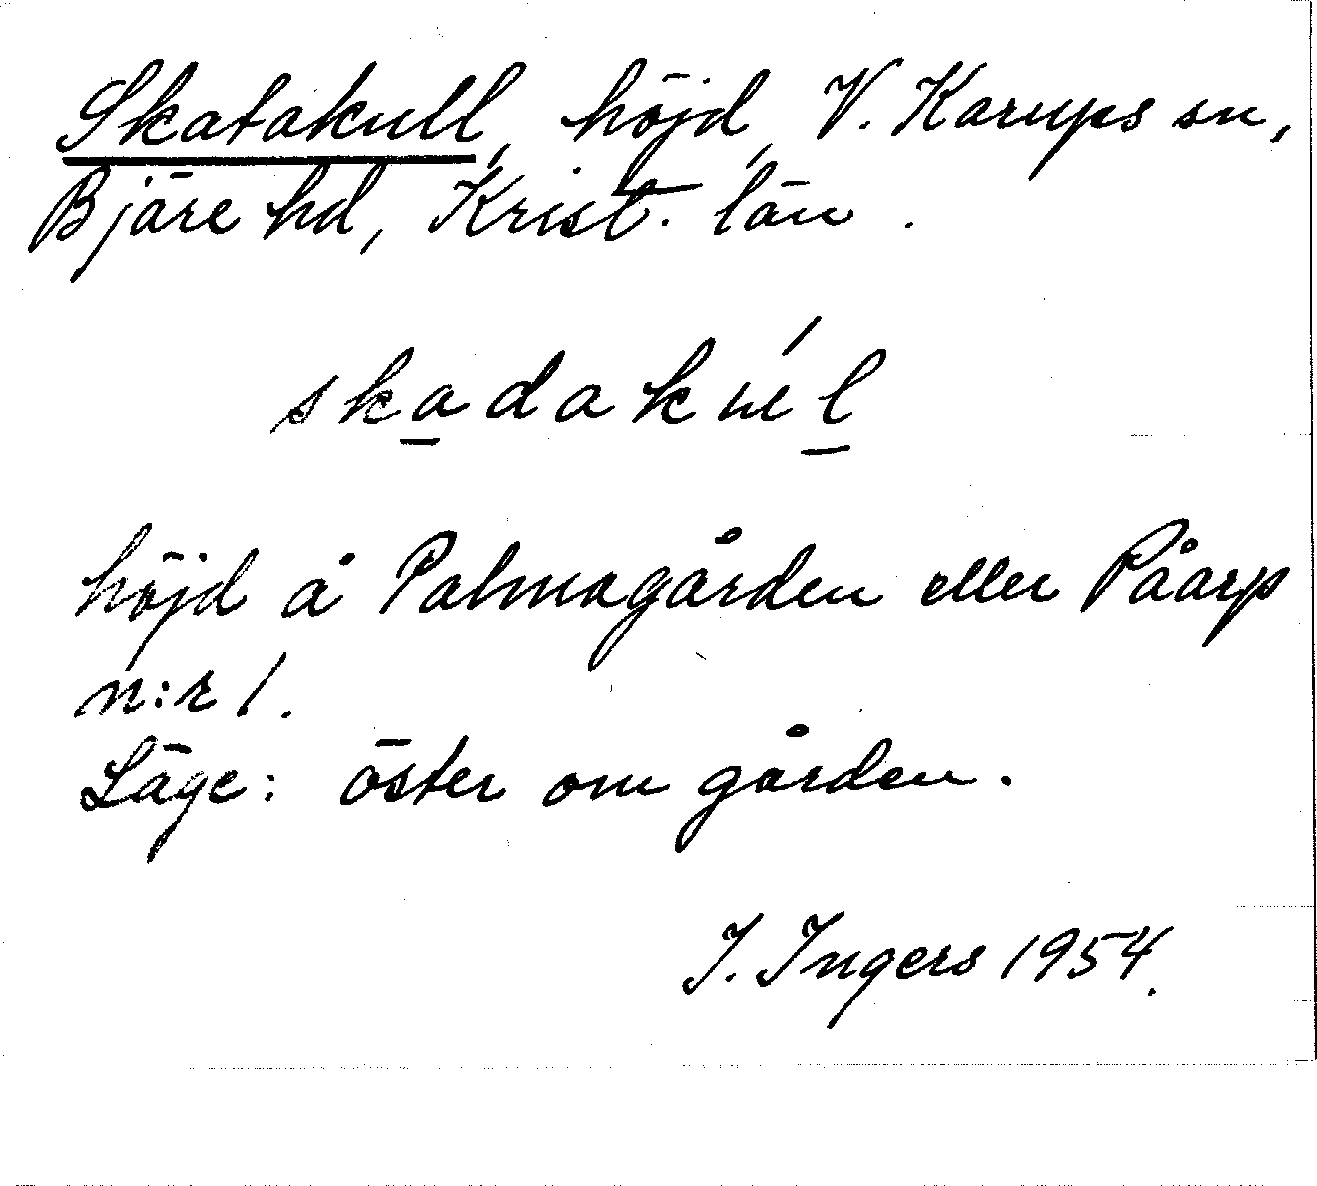 Skatakull, höjd, V. Karups sn,
Bjäre hd, Krist. län.
skadakúl
höjd å Palmagården eller Påarp
n:r 1.
Läge: öster om gården.
I. Ingers 1954.